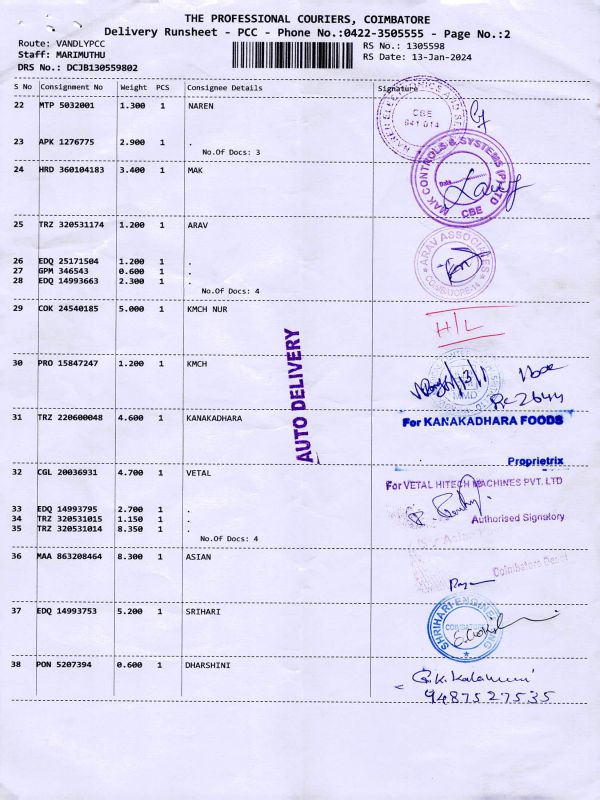 THE PROFESSIONAL COURIERS, COIMBATORE
Delivery Runsheet - PCC - Phone No.:0422-3505555 - Page No.:2
Route: VANDLYPCC
Staff: MARIMUTHU
DRS No.: DCJB130559802
RS No.: 1305598
RS Date: 13-Jan-2024
S No Consignment No Weight PCS Consignee Details Signature
22 MTP 5032001 1.300 1 NAREN
CBE
641 014
23 APK 1276775 2.900 1 .
No.Of Docs: 3
24 HRD 360104183 3.400 1 MAK
MAK CONTROLS & SYSTEMS (P) LTD
Date
CBE
25 TRZ 320531174 1.200 1 ARAV
ARAV ASSOCIATES
COIMBATORE-14
26 EDQ 25171504 1.200 1 .
27 GPM 346543 0.600 1 .
28 EDQ 14993663 2.300 1 .
No.Of Docs: 4
29 COK 24540185 5.000 1 KMCH NUR
H/L
AUTO DELIVERY
30 PRO 15847247 1.200 1 KMCH
MMD
31 TRZ 220600048 4.600 1 KANAKADHARA
For KANAKADHARA FOODS
Proprietrix
32 CGL 20036931 4.700 1 VETAL
For VETAL HITECH MACHINES PVT. LTD
Authorised Signatory
33 EDQ 14993795 2.700 1 .
34 TRZ 320531015 1.150 1 .
35 TRZ 320531014 8.350 1 .
No.Of Docs: 4
36 MAA 863208464 8.300 1 ASIAN
Coimbatore Depot
37 EDQ 14993753 5.200 1 SRIHARI
SHRIHARI ENGINEERING
COIMBATORE
38 PON 5207394 0.600 1 DHARSHINI
9487527535